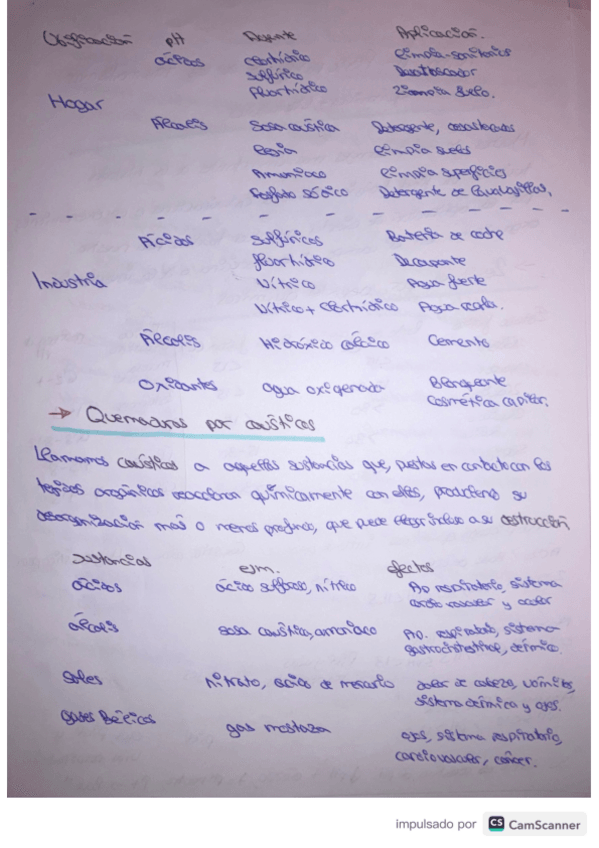 Utilización pH Agente Aplicación.
ácidos clorhídrico limpia-sanitarios
sulfúrico Desatascador
fluorhídrico Limpia suelo.
Hogar
Álcalis Sosa caústica Detergente, desatascador
Lejía limpia suelos
Amoniaco limpia superficies
Fosfato sódico Detergente de lavavajillas.
Ácidos Sulfúricos Batería de coche
fluorhídrico Decapante
Industria Nítrico Agua fuerte
Nítrico + clorhídrico Agua regia.
Álcalis Hidróxido cálcico Cemento
Oxidantes agua oxigenada Blanqueante
cosmética capilar.
→ Quemaduras por caústicos
Llamamos caústicos a aquellas sustancias que, puestas en contacto con los
tejidos orgánicos reaccionan químicamente con ellos, produciendo su
desorganización más o menos profunda, que puede llegar incluso a su destrucción
Sustancias ejm. efectos
ácidos ácido sulfuroso, nítrico Ap respiratorio, sistema
cardiovascular y ocular
álcalis sosa caústica, amoniaco Ap. respiratorio, sistema
gastrointestinal, dérmico.
Sales nitrato, de mercurio dolor de cabeza, vómitos,
sistema dérmico y ojos.
gases Bélicos gas mostaza ojos, sistema respiratorio,
cardiovascular, cáncer.
impulsado por CS CamScanner